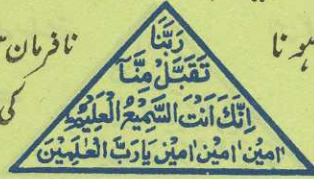 ہونا
نافرمان
کی
رَبَّنَا
تَقَبَّلْ مِنَّآ
اِنَّكَ اَنْتَ السَّمِيْعُ الْعَلِيْمُ
اٰمِيْن اٰمِيْن اٰمِيْن يَارَبَّ الْعٰلَمِيْنَ